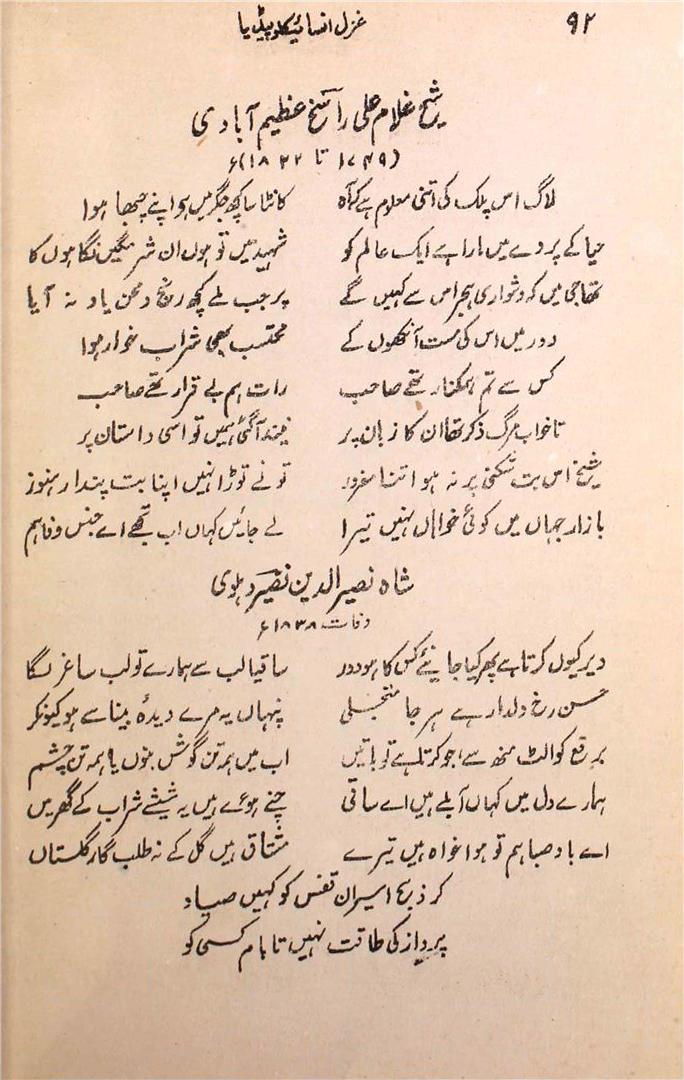 ۹۲ غزل انسائیکلوپیڈیا
شیخ غلام علی راسخ عظیم آبادی
(۱۷۴۹ تا ۱۸۲۲ء)
لاگ اس پلک کی اتنی معلوم ہے کہ آہ کانٹا سا کچھ جگر میں ہو اپنے چبھا ہوا
حیا کے پردے میں مارا ہے ایک عالم کو شہید میں تو ہوں ان شرمگیں نگاہوں کا
تھا جی میں کہ دشواری ہجر اس سے کہیں گے پر جب ملے کچھ رنج و محن یاد نہ آیا
دور میں اس کی مست آنکھوں کے محتسب بھی شراب خوار ہوا
کس سے تم ہمکنار تھے صاحب رات ہم بے قرار تھے صاحب
تا خواب مرگ ذکر تھا ان کا زبان پر نیند آگئی ہمیں تو اسی داستان پر
شیخ اس بت شکنی پر نہ ہو اتنا مغرور تو نے توڑا نہیں اپنا بت پندار ہنوز
بازار جہاں میں کوئی خواہاں نہیں تیرا لے جائیں کہاں اب تجھے اے جنس وفا ہم
شاہ نصیر الدین نصیر دہلوی
وفات ۱۸۳۸ء
دیر کیوں کرتا ہے پھر کیا جانیئے کس کا ہو دور ساقیا لب سے ہمارے تو لب ساغر لگا
حسن رخ دلدار ہے ہر جا متجلی پنہاں یہ مرے دیدۂ بینا سے ہو کیونکر
برقع کو الٹ منھ سے جو کرتا ہے تو باتیں اب میں ہمہ تن گوش بنوں یا ہمہ تن چشم
ہمارے دل میں کہاں آبلے ہیں اے ساقی چنے ہوئے ہیں یہ شیشے شراب کے گھر میں
اے باد صبا ہم تو ہوا خواہ ہیں تیرے مشتاق ہیں گل کے نہ طلب گار گلستاں
کر ذبح اسیران قفس کو کہیں صیاد
پرواز کی طاقت نہیں تا بام کسی کو